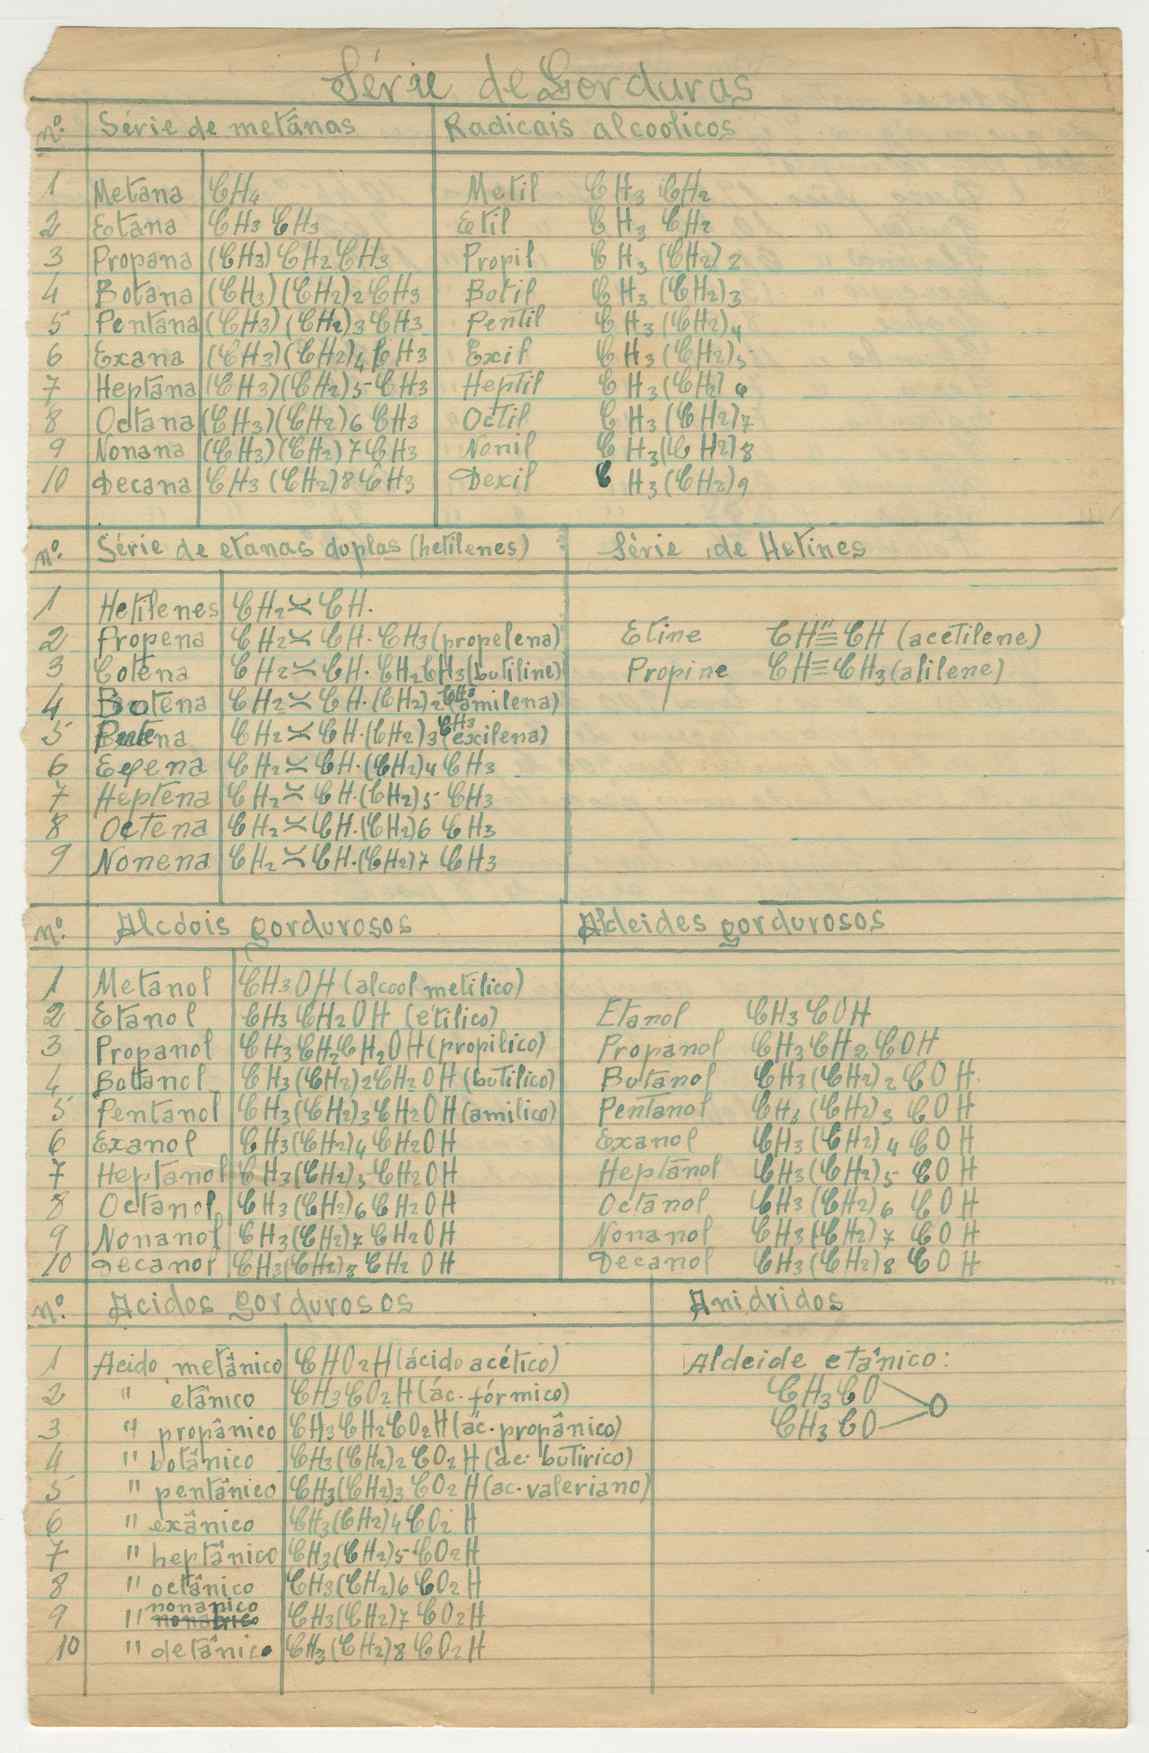 Série de Gorduras
Nº. Série de metânas Radicais alcoolicos
1 Metana CH4 Metil CH3 CH2
2 Etana CH3 CH3 Etil CH3 CH2
3 Propana (CH3) CH2 CH3 Propil CH3 (CH2) 2
4 Botana (CH3) (CH2)2 CH3 Botil CH3 (CH2)3
5 Pentana (CH3) (CH2)3 CH3 Pentil CH3 (CH2)4
6 Exana (CH3)(CH2)4 CH3 Exil CH3 (CH2)5
7 Heptana (CH3)(CH2)5 CH3 Heptil CH3 (CH2) 6
8 Octana (CH3)(CH2)6 CH3 Octil CH3 (CH2)7
9 Nonana (CH3)(CH2)7 CH3 Nonil CH3 (CH2)8
10 Decana CH3 (CH2)8 CH3 Dexil CH3 (CH2)9
Nº. Série de etanas duplas (hetilenes) Série de Hetines
1 Hetilenes CH2 = CH.
2 Propena CH2 = CH. CH3 (propelena) Etine CH≡CH (acetilene)
3 Cotena CH2 = CH. CH2 CH3 (butiline) Propine CH≡CH3 (alilene)
4 Botena CH2 = CH. (CH2)2 CH3 (amilena)
5 Pentena CH2 = CH. (CH2)3 CH3 (exilena)
6 Exena CH2 = CH. (CH2)4 CH3
7 Heptena CH2 = CH. (CH2)5 CH3
8 Octena CH2 = CH. (CH2)6 CH3
9 Nonena CH2 = CH. (CH2)7 CH3
Nº. Alcóois gordurosos Aldeides gordurosos
1 Metanol CH3 OH (alcool metilico)
2 Etanol CH3 CH2 OH (etilico) Etanol CH3 COH
3 Propanol CH3 CH2 CH2 OH (propilico) Propanol CH3 CH2 COH
4 Bottanol CH3 (CH2)2 CH2 OH (butilico) Butanol CH3 (CH2)2 COH
5 Pentanol CH3 (CH2)3 CH2 OH (amilico) Pentanol CH3 (CH2)3 COH
6 Exanol CH3 (CH2)4 CH2 OH Exanol CH3 (CH2)4 COH
7 Heptanol CH3 (CH2)5 CH2 OH Heptanol CH3 (CH2)5 COH
8 Octanol CH3 (CH2)6 CH2 OH Octanol CH3 (CH2)6 COH
9 Nonanol CH3 (CH2)7 CH2 OH Nonanol CH3 (CH2)7 COH
10 Decanol CH3 (CH2)8 CH2 OH Decanol CH3 (CH2)8 COH
Nº. Acidos gordurosos Anidridos
1 Acido metânico CHO2H (ácido acético) Aldeide etânico:
2 " etânico CH3 CO2H (ác. fórmico) CH3 CO
3 " propânico CH3 CH2 CO2H (ac. propânico) CH3 CO O
4 " botânico CH3 (CH2)2 CO2H (ac. butirico)
5 " pentânico CH3 (CH2)3 CO2H (ac. valeriano)
6 " exânico CH3 (CH2)4 CO2H
7 " heptânico CH3 (CH2)5 CO2H
8 " octânico CH3 (CH2)6 CO2H
9 " nonanico CH3 (CH2)7 CO2H
10 " detânico CH3 (CH2)8 CO2H